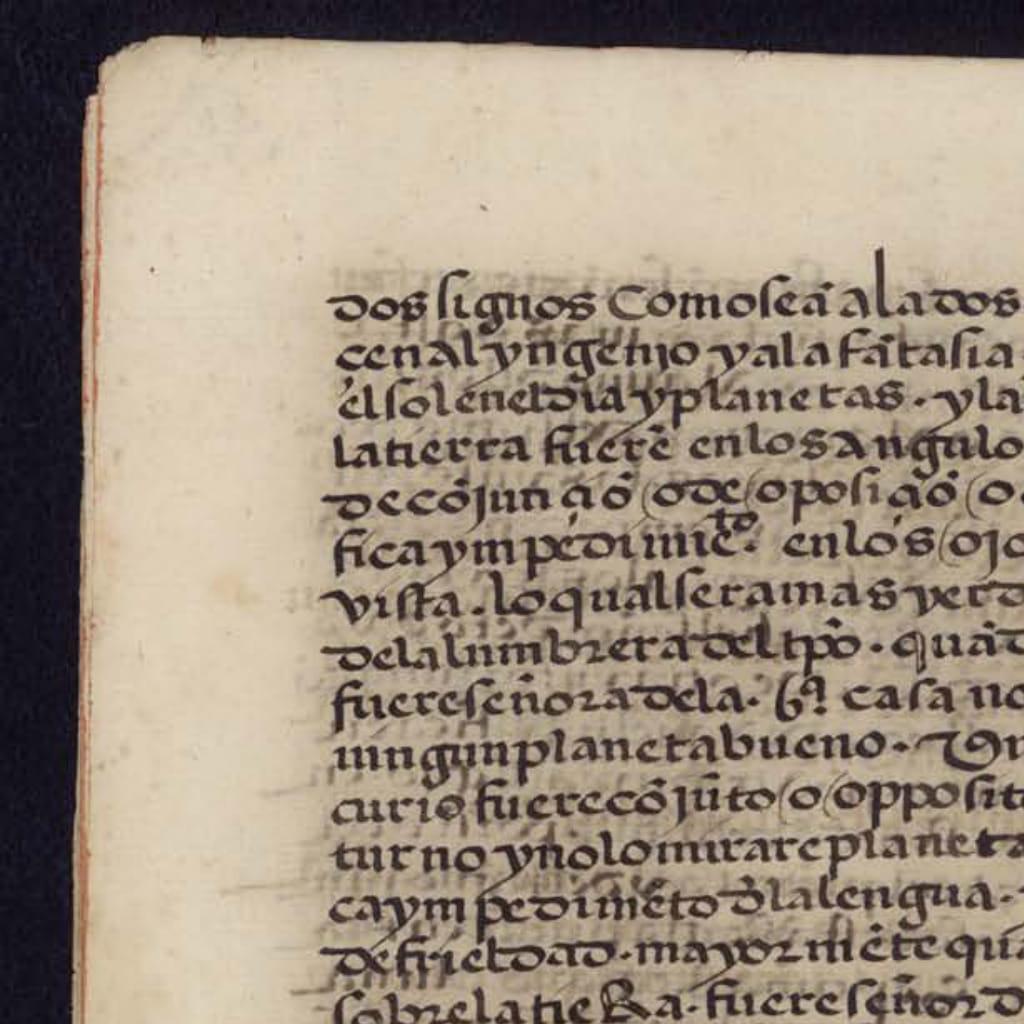 dos signos Como seã a la dos
cen al yngenio y a la fãtasia
el sol en el dia y planetas . y la
la tierra fuerẽ en los angulo
de cõjunçiõ o de oposiçiõ o
fica ympedimiẽto . en los ojo
vista . lo qual sera mas verd
de la lumbrera del tpõ . quãd
fuere señora de la . 6ª casa no
ningun planeta bueno .
curio fuere cõjũto o opposit
turno y ño lo mirare planeta
ca ympedimẽto dl̃a lengua .
de frieldad . mayor mẽte qua
sobre la tieRa . fuere señor d